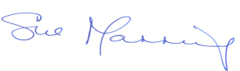 Sue Manning